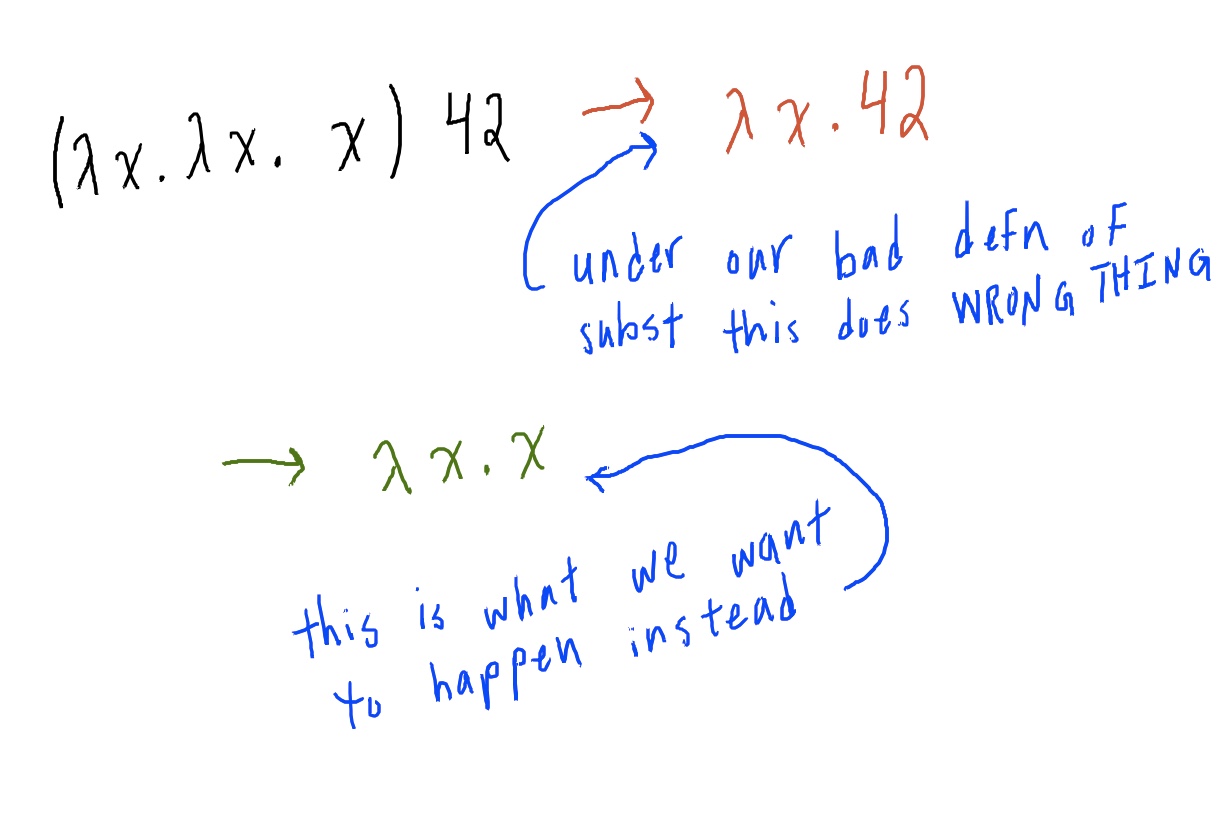 (λx.λx. x) 42 → λx.42
under our bad defn of
subst this does WRONG THING
→ λx.x
this is what we want
to happen instead